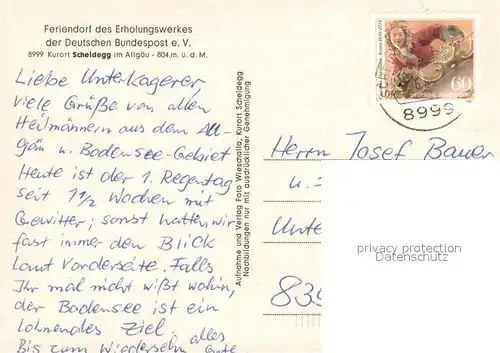 Feriendorf des Erholungswerkes
der Deutschen Bundespost e. V.
8999 Kurort Scheidegg im Allgäu - 804 m. ü. d. M.
Liebe Unterkagerer,
viele Grüße von allen
Heilmännern aus dem All-
gäu u. Bodensee-Gebiet
Heute ist der 1. Regentag
seit 1 1/2 Wochen mit
Gewitter; sonst hatten wir
fast immer den Blick
laut Vorderseite. Falls
Ihr mal nicht wißt wohin,
der Bodensee ist ein
lohnendes Ziel.
Bis zum Wiedersehn alles
Gute
Aufnahme und Verlag Foto Wieschalla, Kurort Scheidegg
Nachbildungen nur mit ausdrücklicher Genehmigung
60
8999
Herrn Josef Bauer
u.
Unte
839
privacy protection
Datenschutz